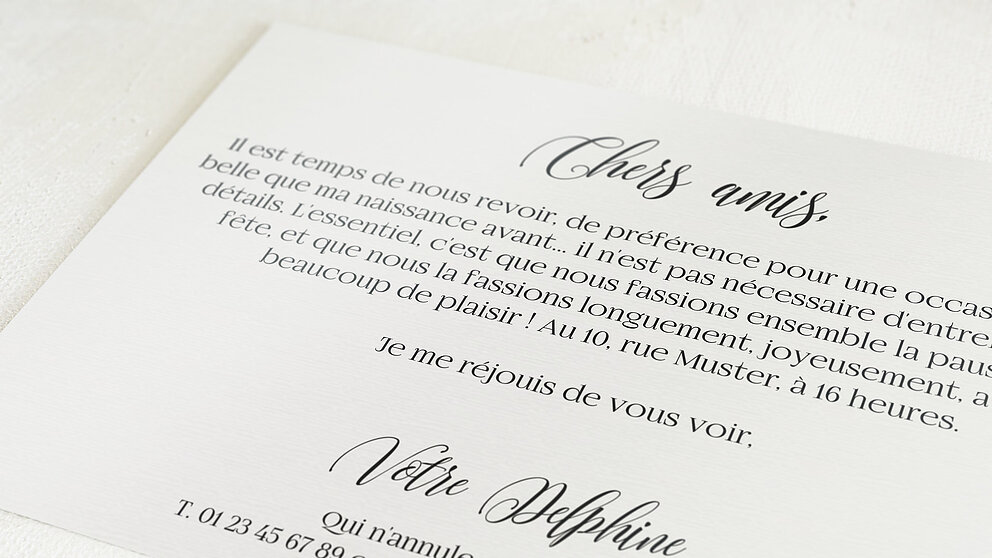 Chers amis,
Il est temps de nous revoir, de préférence pour une
belle que ma naissance avant... il n'est pas nécessaire
détails. L'essentiel, c'est que nous fassions ensemble la
fête, et que nous la fassions longuement, joyeusement,
beaucoup de plaisir ! Au 10, rue Muster, à 16 heures.
Je me réjouis de vous voir,
Votre Delphine
Qui n'annule
T. 01 23 45 67 89